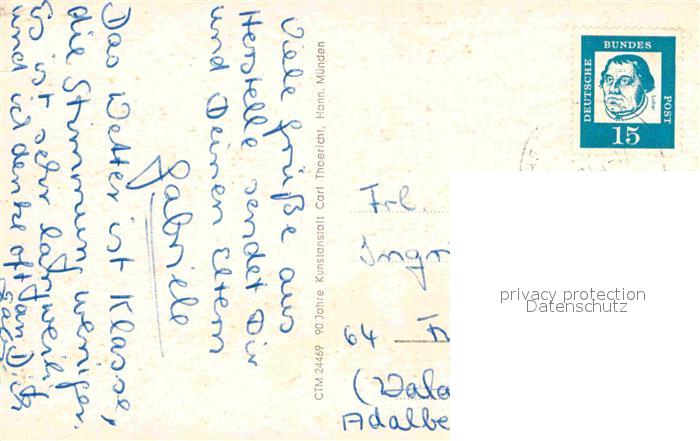 Viele Grüße aus
Herstelle sendet Dir
und Deinen Eltern
Gabriele
Das Wetter ist Klasse,
die Stimmung weniger.
Es ist sehr langweilig
und ich denke oft an Dich
CTM 24469 90 Jahre Kunstanstalt Carl Thoericht, Hann. Münden
DEUTSCHE
BUNDES
POST
Luther
15
Frl.
64
privacy protection
Datenschutz
Adalbe